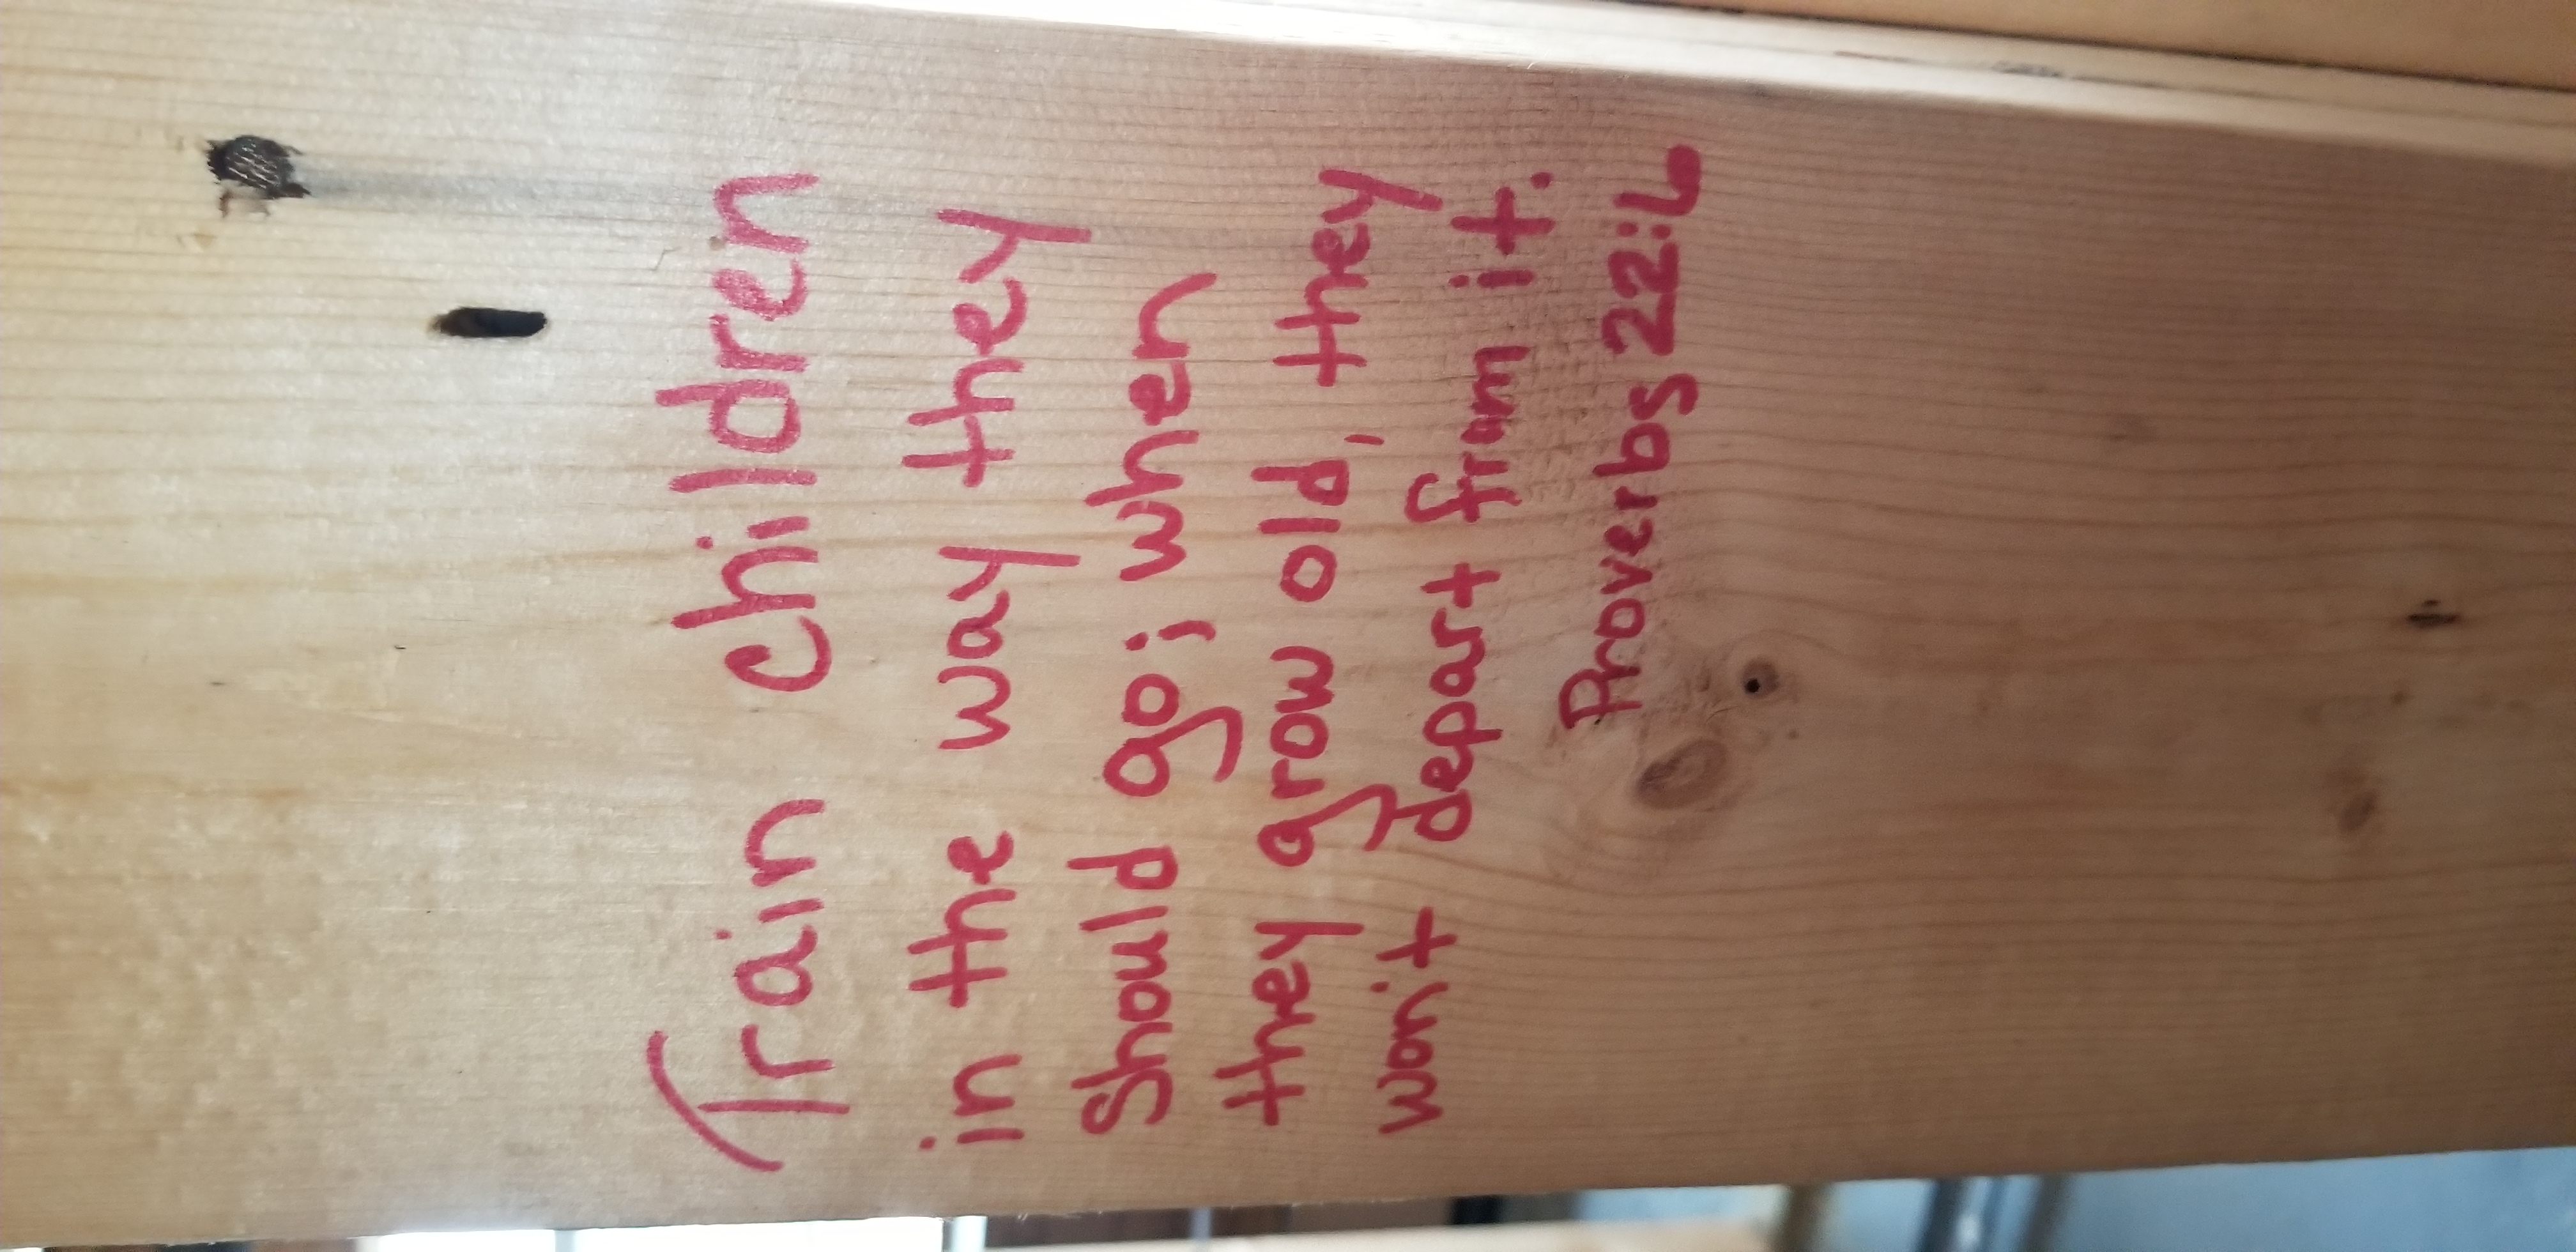 Train children
in the way they
should go; when
they grow old, they
won't depart from it.
Proverbs 22:6